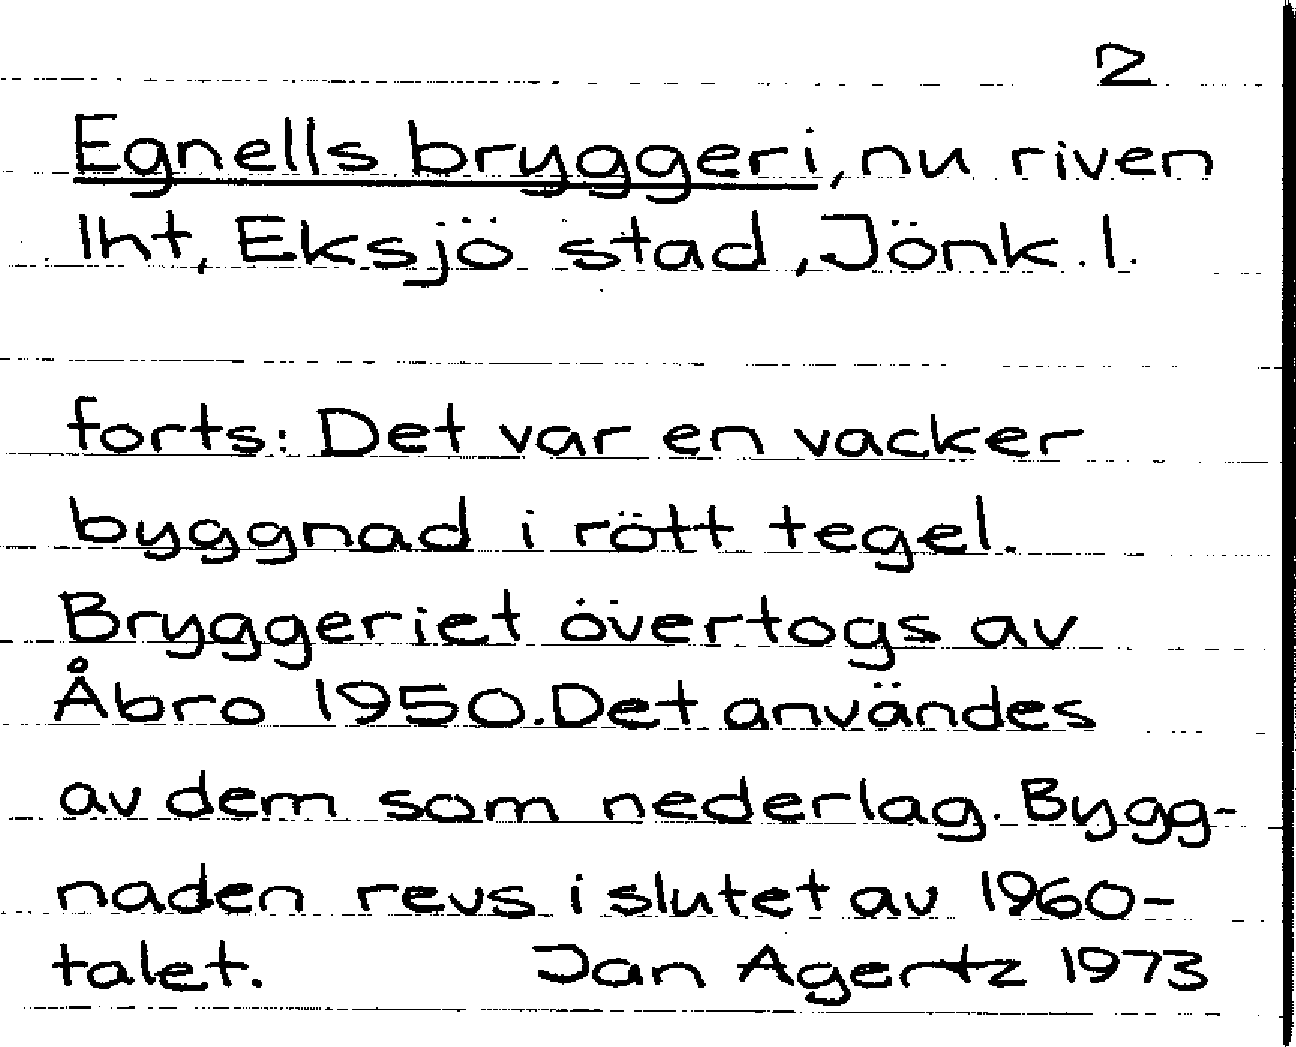 2
Egnells bryggeri, nu riven
Iht, Eksjö stad, Jönk. l.
forts: Det var en vacker
byggnad i rött tegel.
Bryggeriet övertogs av
Åbro 1950. Det användes
av dem som nederlag. Bygg-
naden revs i slutet av 1960-
talet. Jan Agertz 1973